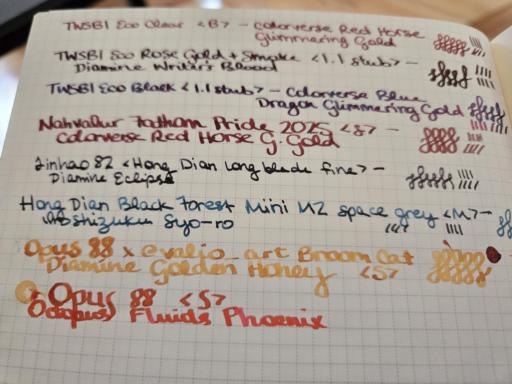 TWSBI Eco Clear <B> - Colorverse Red Horse
Glimmering Gold
TWSBI Eco Rose Gold + Smoke <1.1 stub> -
Diamine Writer's Blood
TWSBI Eco Black <1.1 stub> - Colorverse Blue
Dragon Glimmering Gold
Nahvalur Fathom Pride 2025 <B> -
Colorverse Red Horse G. Gold
Jinhao 82 <Hong Dian Long blade fine> -
Diamine Eclipse
Hong Dian Black Forest Mini M2 space grey <M> -
Iroshizuku Syo-ro
Opus 88 x evalio_art Broom Cat
Diamine Golden Honey <S>
Opus 88 <S>
Octopus Fluids Phoenix